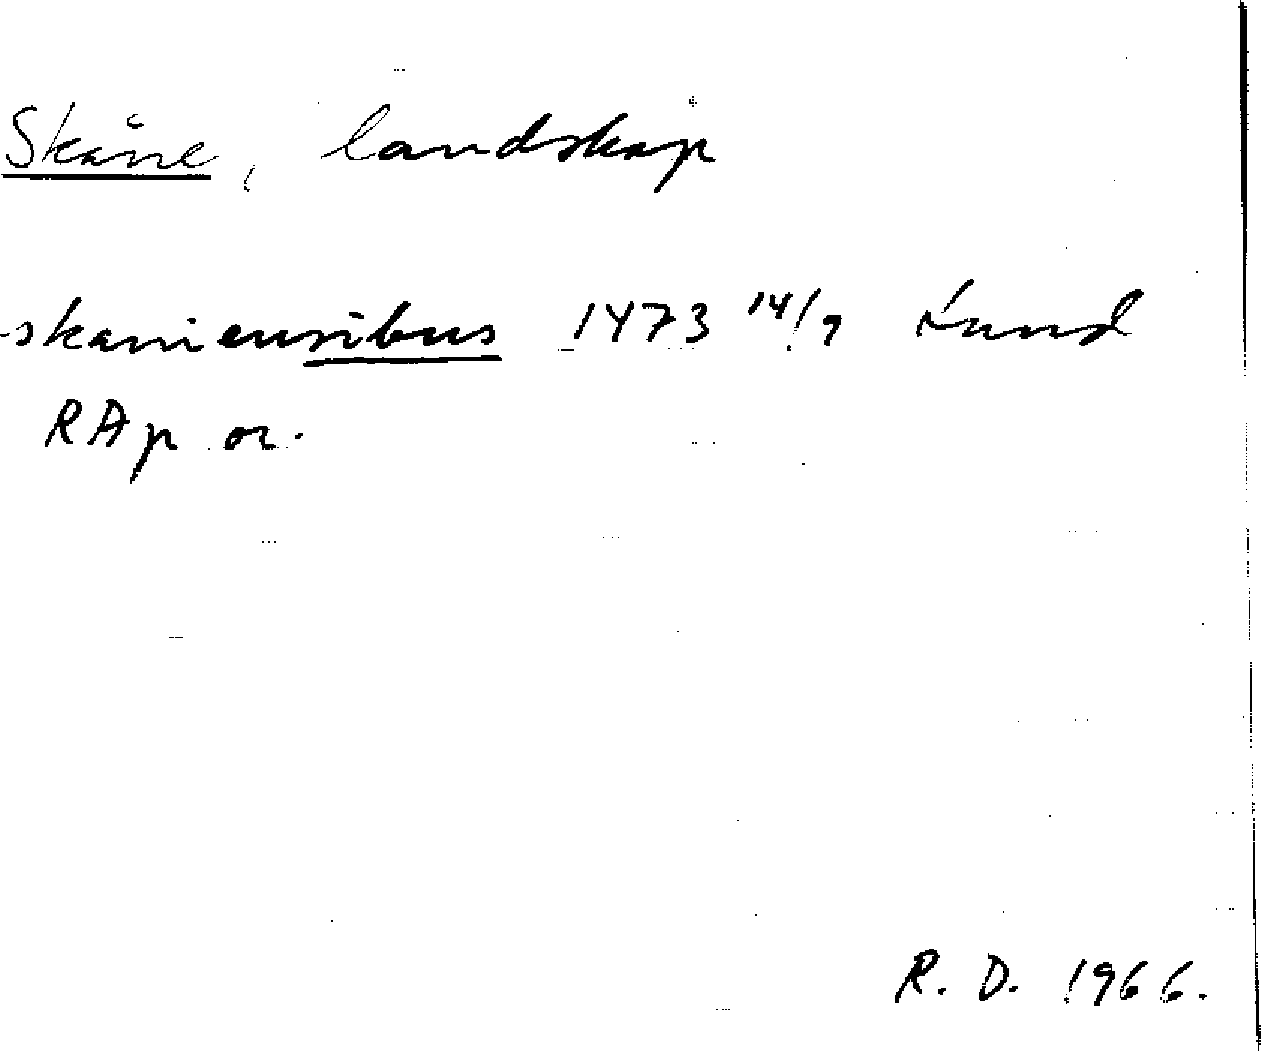 Skåne, landskap
skaniensibus 1473 14/9 Lund
RAp or.
R. D. 1966.